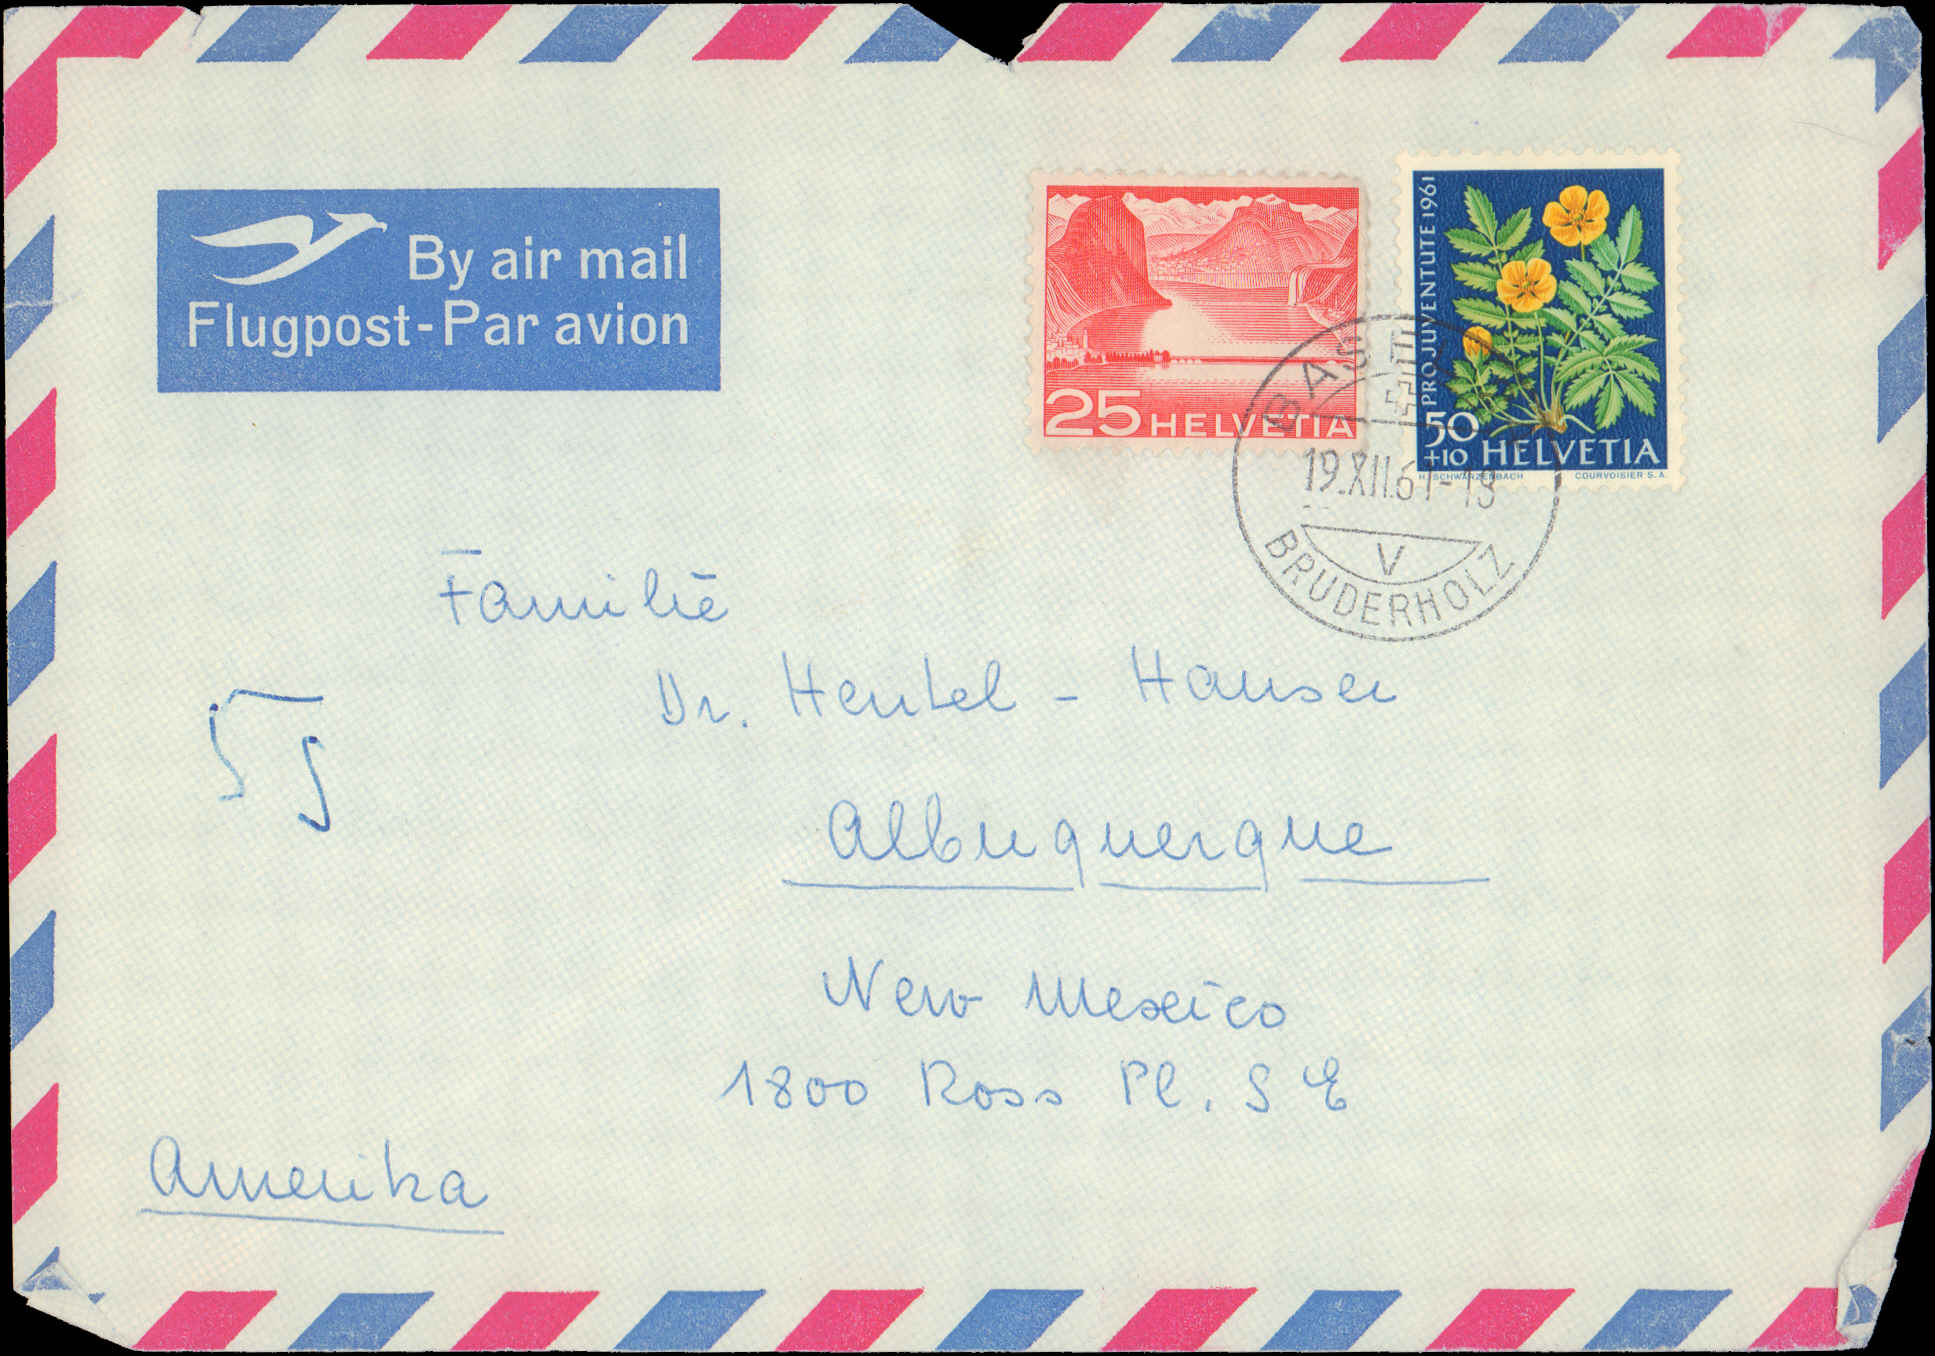 By air mail
Flugpost-Par avion
25 HELVETIA
PRO JUVENTUTE 1961
50
+10 HELVETIA
H. SCHWARZENBACH COURVOISIER S.A.
BASEL
19.XII.61-18
V
BRUDERHOLZ
Familie
Dr. Henkel - Hauser
Albuquerque
New Mexico
1800 Ross Pl. S E
Amerika